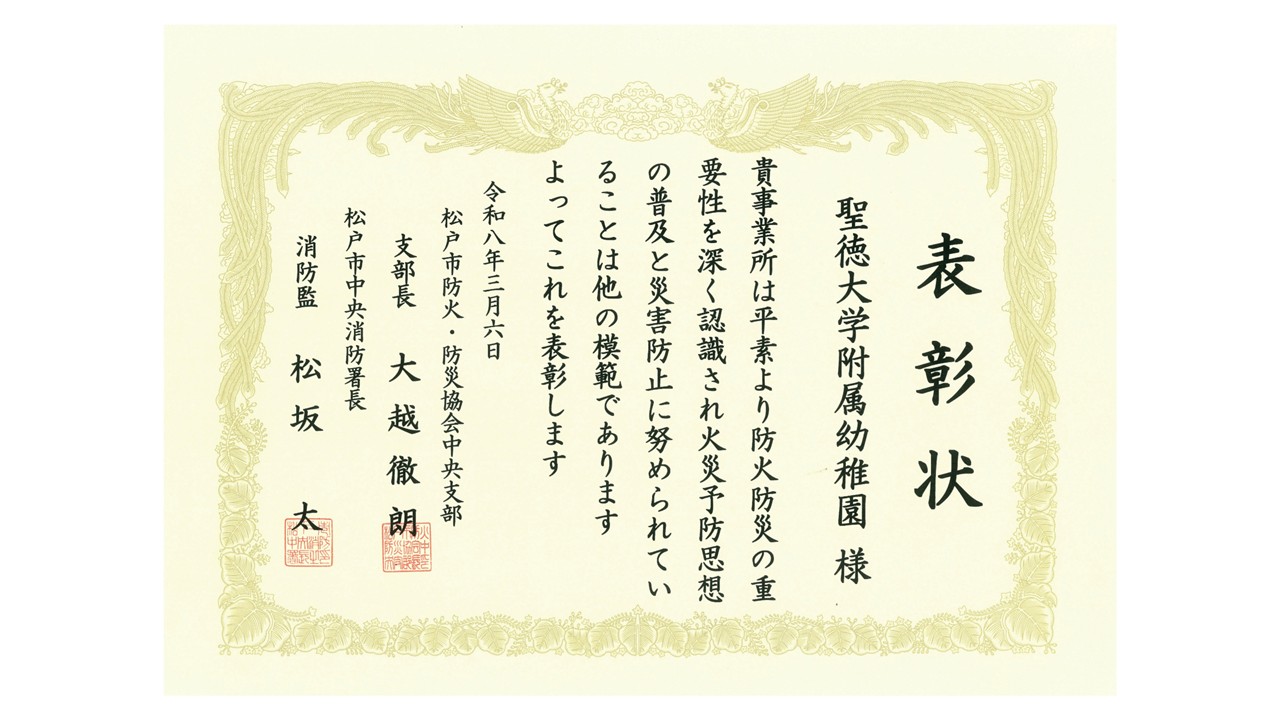 表彰状
聖徳大学附属幼稚園 様
貴事業所は平素より防火防災の重
要性を深く認識され火災予防思想
の普及と災害防止に努められてい
ることは他の模範であります
よってこれを表彰します
令和八年三月六日
松戸市防火・防災協会中央支部
支部長 大越徹朗
松戸市中央消防署長
消防監 松坂 太